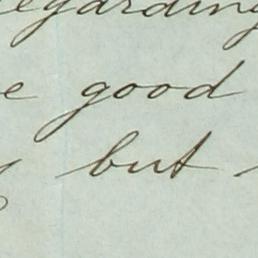 regarding
good
but